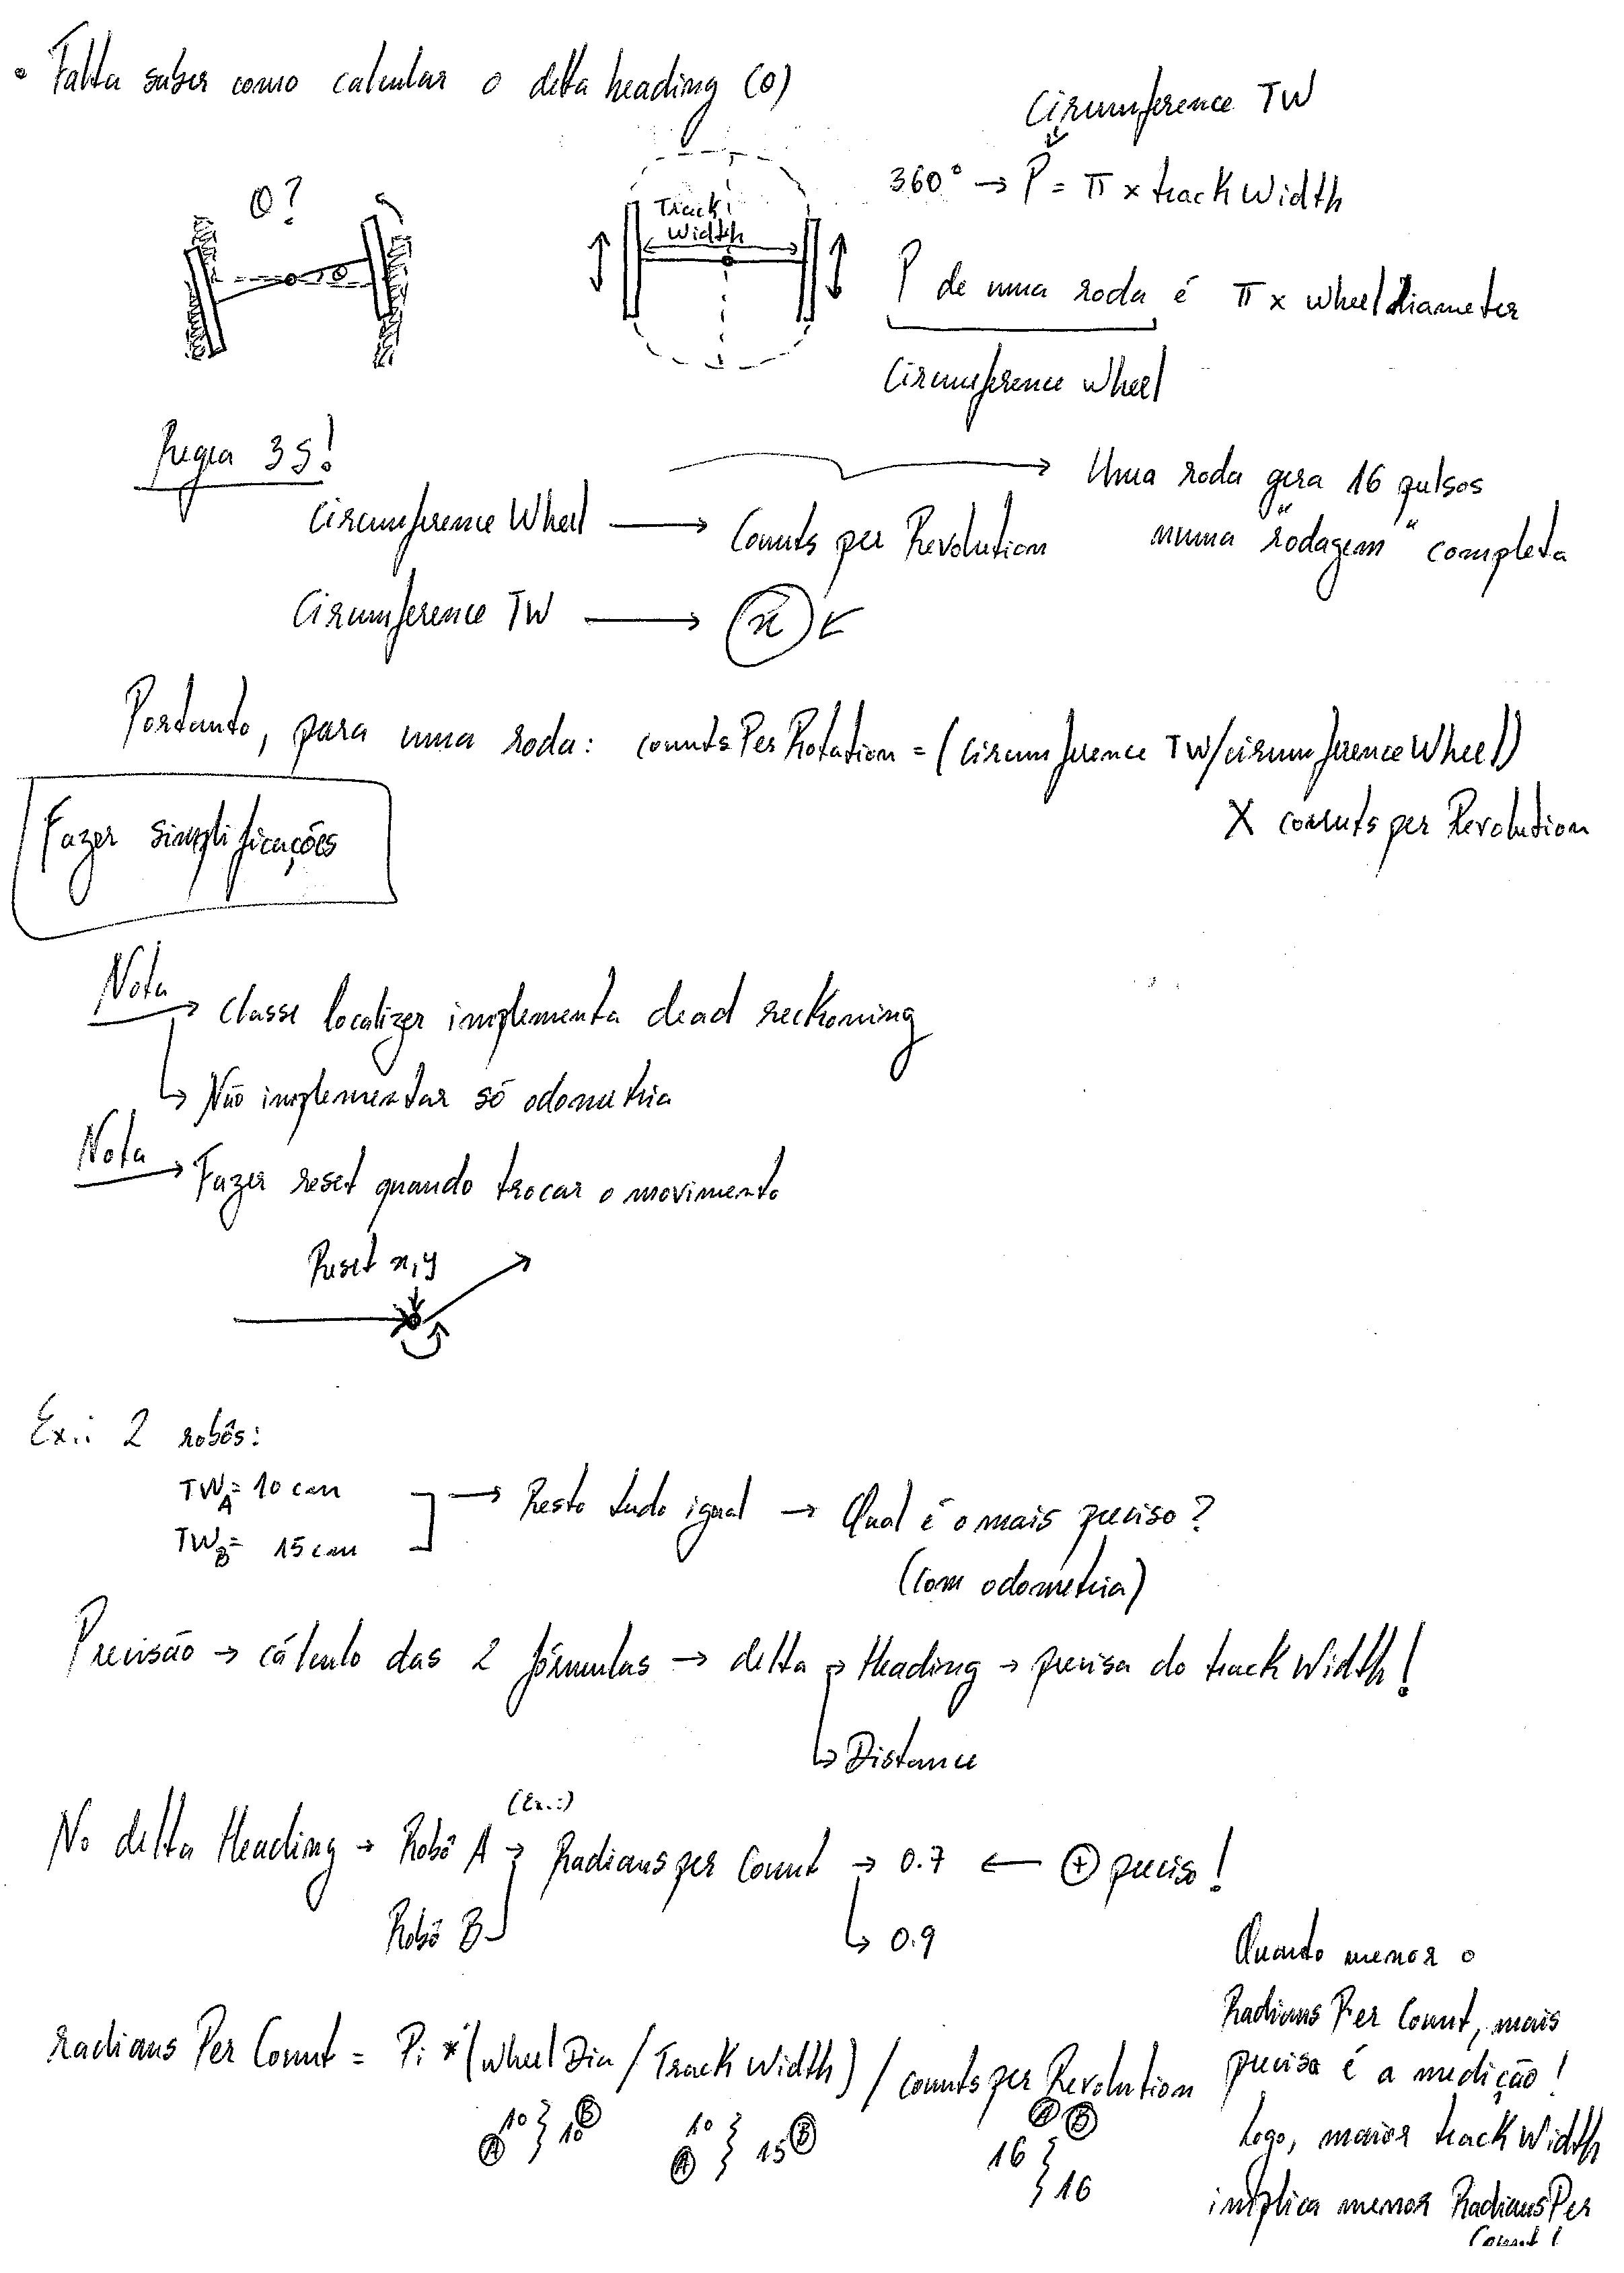 • Falta saber como calcular o delta heading (O)
Circumference TW
360° → P = π x track Width
O?
Track
Width
P de uma roda é π x wheel diameter
Circumference wheel
Regra 3S!
Circumference Wheel → Counts per Revolution
Uma roda gera 16 pulsos
numa "rodagem" completa
Circumference TW → (x) ←
Portanto, para uma roda: counts Per Rotation = (circumference TW/circumference Wheel)
X counts per Revolution
Fazer simplificações
Nota → Classe localizer implementa dead reckoning
↳ Não implementar só odometria
Nota → Fazer reset quando trocar o movimento
Reset x,y
Ex.: 2 robôs:
TW_A = 10 cm
TW_B = 15 cm
→ Resto tudo igual → Qual é o mais preciso?
(com odometria)
Precisão → cálculo das 2 fórmulas → delta → Heading → precisa do track Width!
↳ Distance
(Ex.:)
No delta Heading → Robô A → Radians per Count → 0.7 ← ⊕ preciso!
Robô B
↳ 0.9
radians Per Count = Pi * (wheel Dia / Track Width) / counts per Revolution
A 10 } 10 B
A 10 } 15 B
A B
16 } 16
Quanto menor o
Radians Per Count, mais
precisa é a medição!
Logo, maior track Width
implica menor Radians Per
Count!